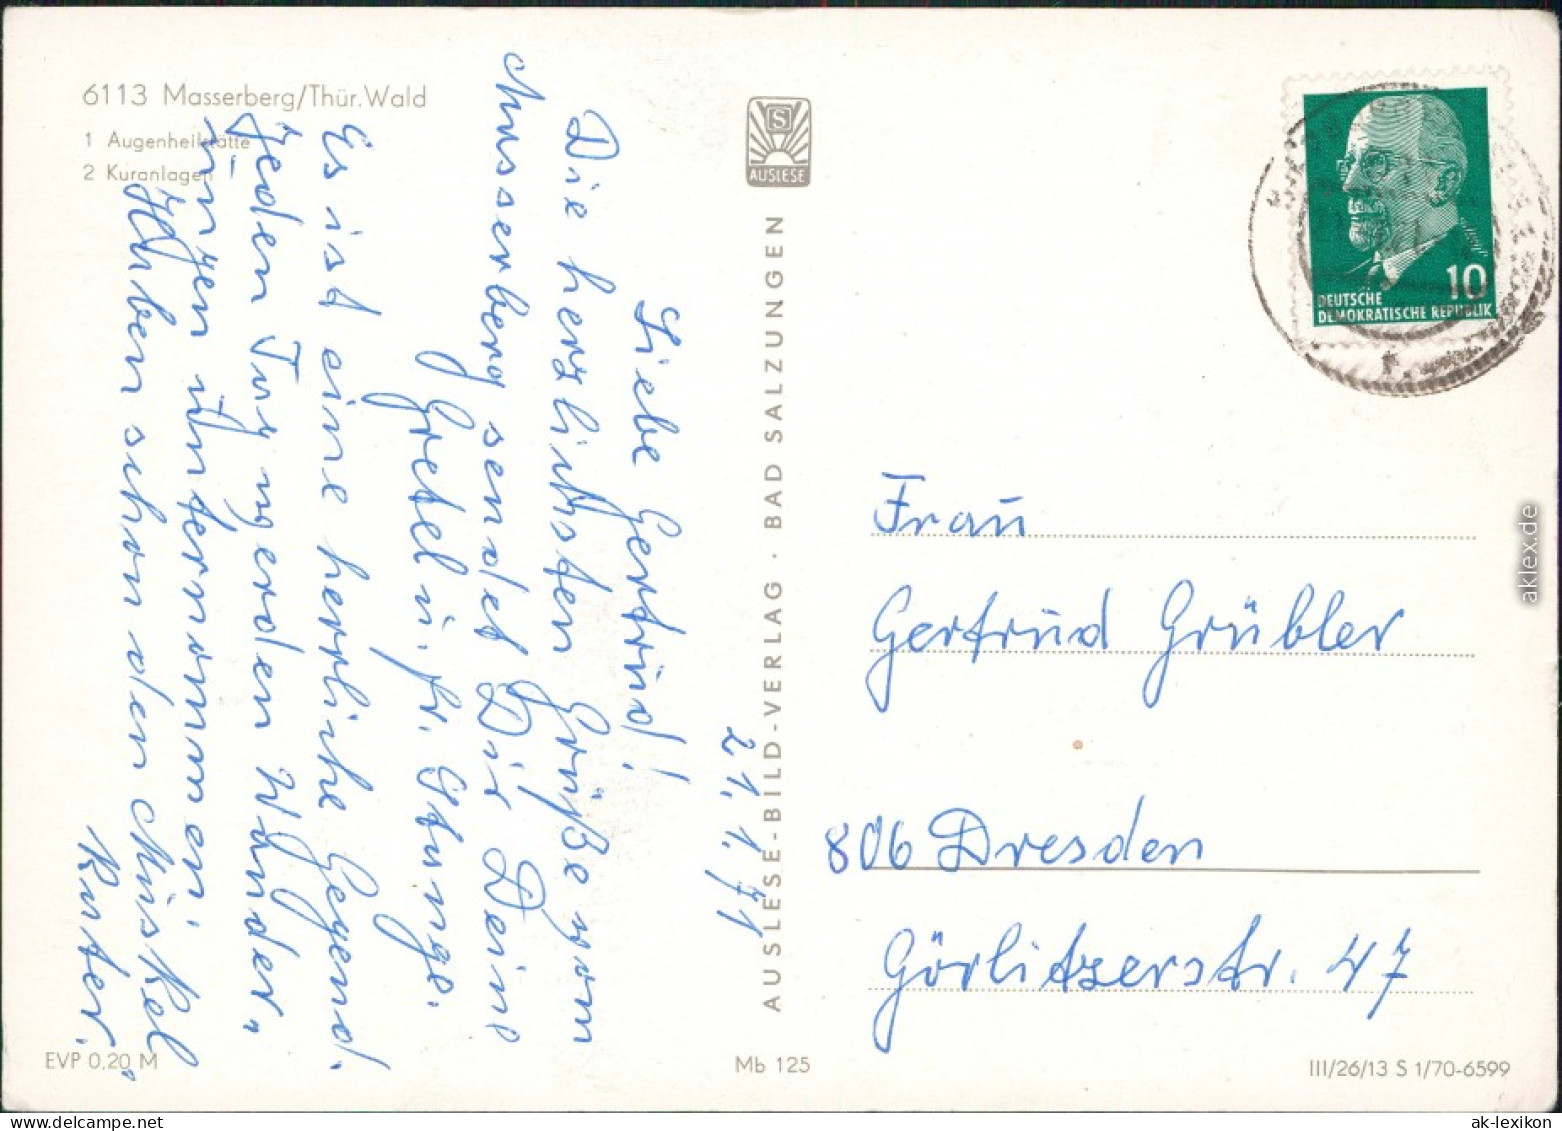 6113 Masserberg/Thür. Wald
1 Augenheilstätte
2 Kuranlagen
21.1.71
Liebe Gertrud!
Die herzlichsten Grüße vom
Masserberg sendet Dir Deine
Gretel u. Fr. Stange.
Es ist eine herrliche Gegend.
Jeden Tag werden Wander„
ungen unternommen.
Haben schon den Muskel„
kater.
S
AUSLESE
AUSLESE-BILD-VERLAG · BAD SALZUNGEN
10
DEUTSCHE
DEMOKRATISCHE REPUBLIK
Frau
Gertrud Grübler
806 Dresden
Görlitzerstr. 47
EVP 0,20 M
Mb 125
III/26/13 S 1/70-6599
aklex.de
ak-lexikon